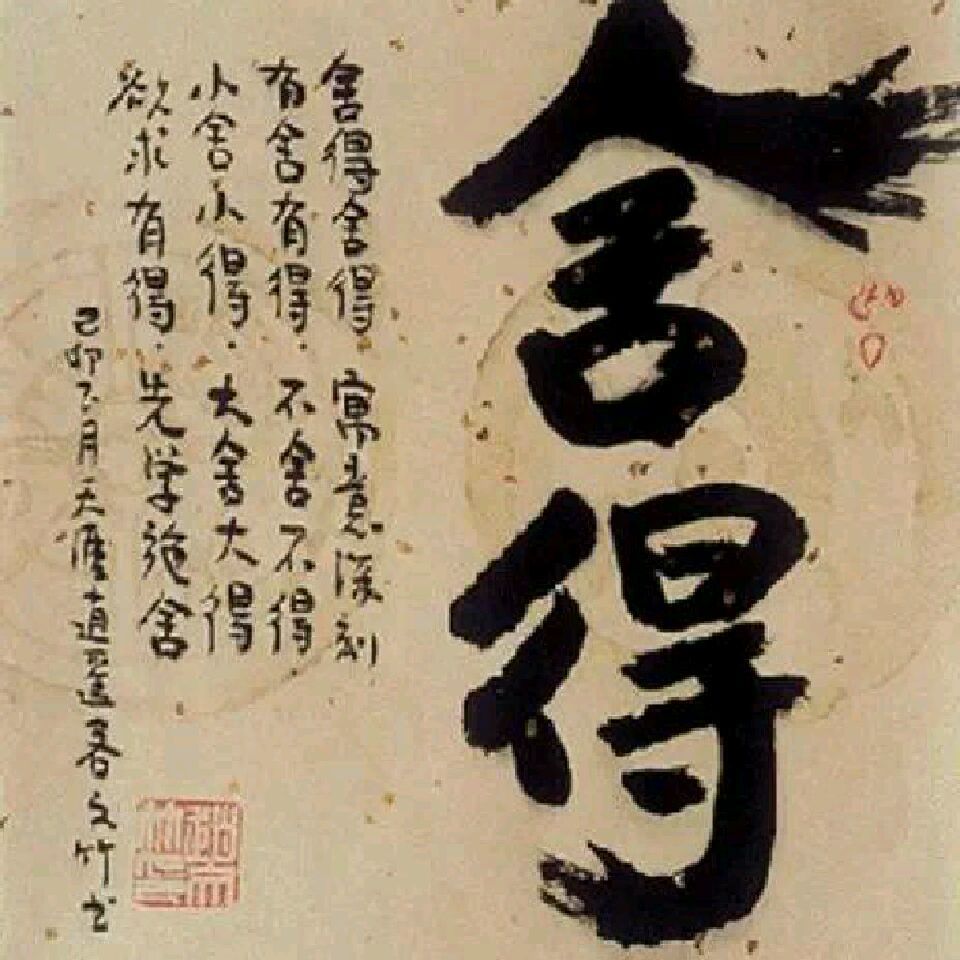 舍得
舍得舍得.寓意深刻
有舍有得.不舍不得
小舍小得.大舍大得
欲求有得.先学施舍
己卯六月天涯道医客文竹书